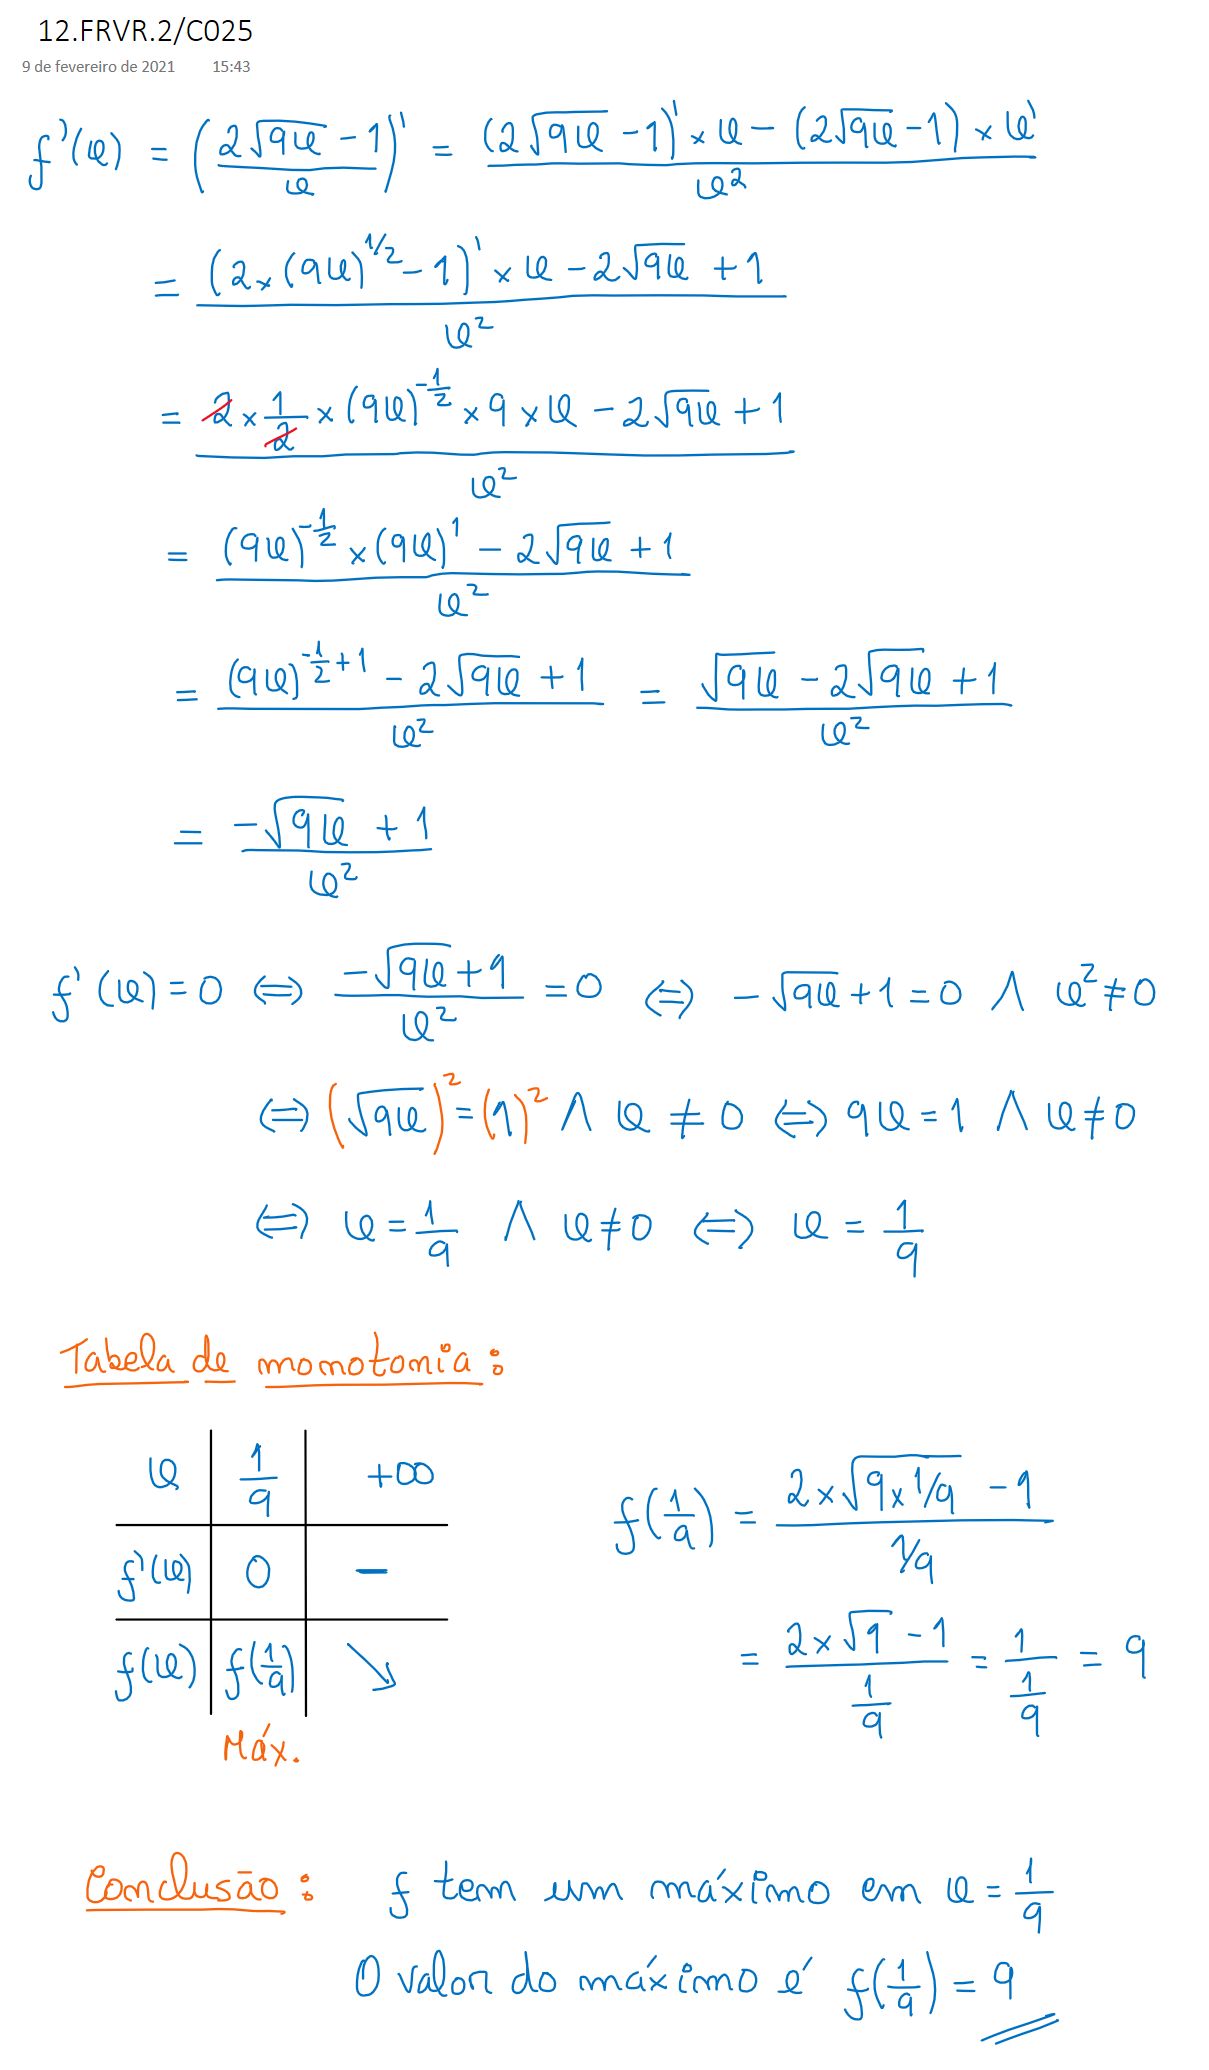 12.FRVR.2/C025
9 de fevereiro de 2021 15:43
f'(x) = ((2√(9x) - 1)/x)' = ((2√(9x) - 1)' × x - (2√(9x) - 1) × x')/x²
= ((2×(9x)^(1/2) - 1)' × x - 2√(9x) + 1)/x²
= (2 × 1/2 × (9x)^(-1/2) × 9 × x - 2√(9x) + 1)/x²
= ((9x)^(-1/2) × (9x)^1 - 2√(9x) + 1)/x²
= ((9x)^(-1/2+1) - 2√(9x) + 1)/x² = (√(9x) - 2√(9x) + 1)/x²
= (-√(9x) + 1)/x²
f'(x) = 0 ⇔ (-√(9x) + 1)/x² = 0 ⇔ -√(9x) + 1 = 0 ∧ x² ≠ 0
⇔ (√(9x))² = (1)² ∧ x ≠ 0 ⇔ 9x = 1 ∧ x ≠ 0
⇔ x = 1/9 ∧ x ≠ 0 ⇔ x = 1/9
Tabela de monotonia:
x 1/9 +∞
f'(x) 0 -
f(x) f(1/9) ↘
Máx.
f(1/9) = (2×√(9×1/9) - 1)/(1/9)
= (2×√1 - 1)/(1/9) = 1/(1/9) = 9
Conclusão: f tem um máximo em x = 1/9
O valor do máximo é f(1/9) = 9